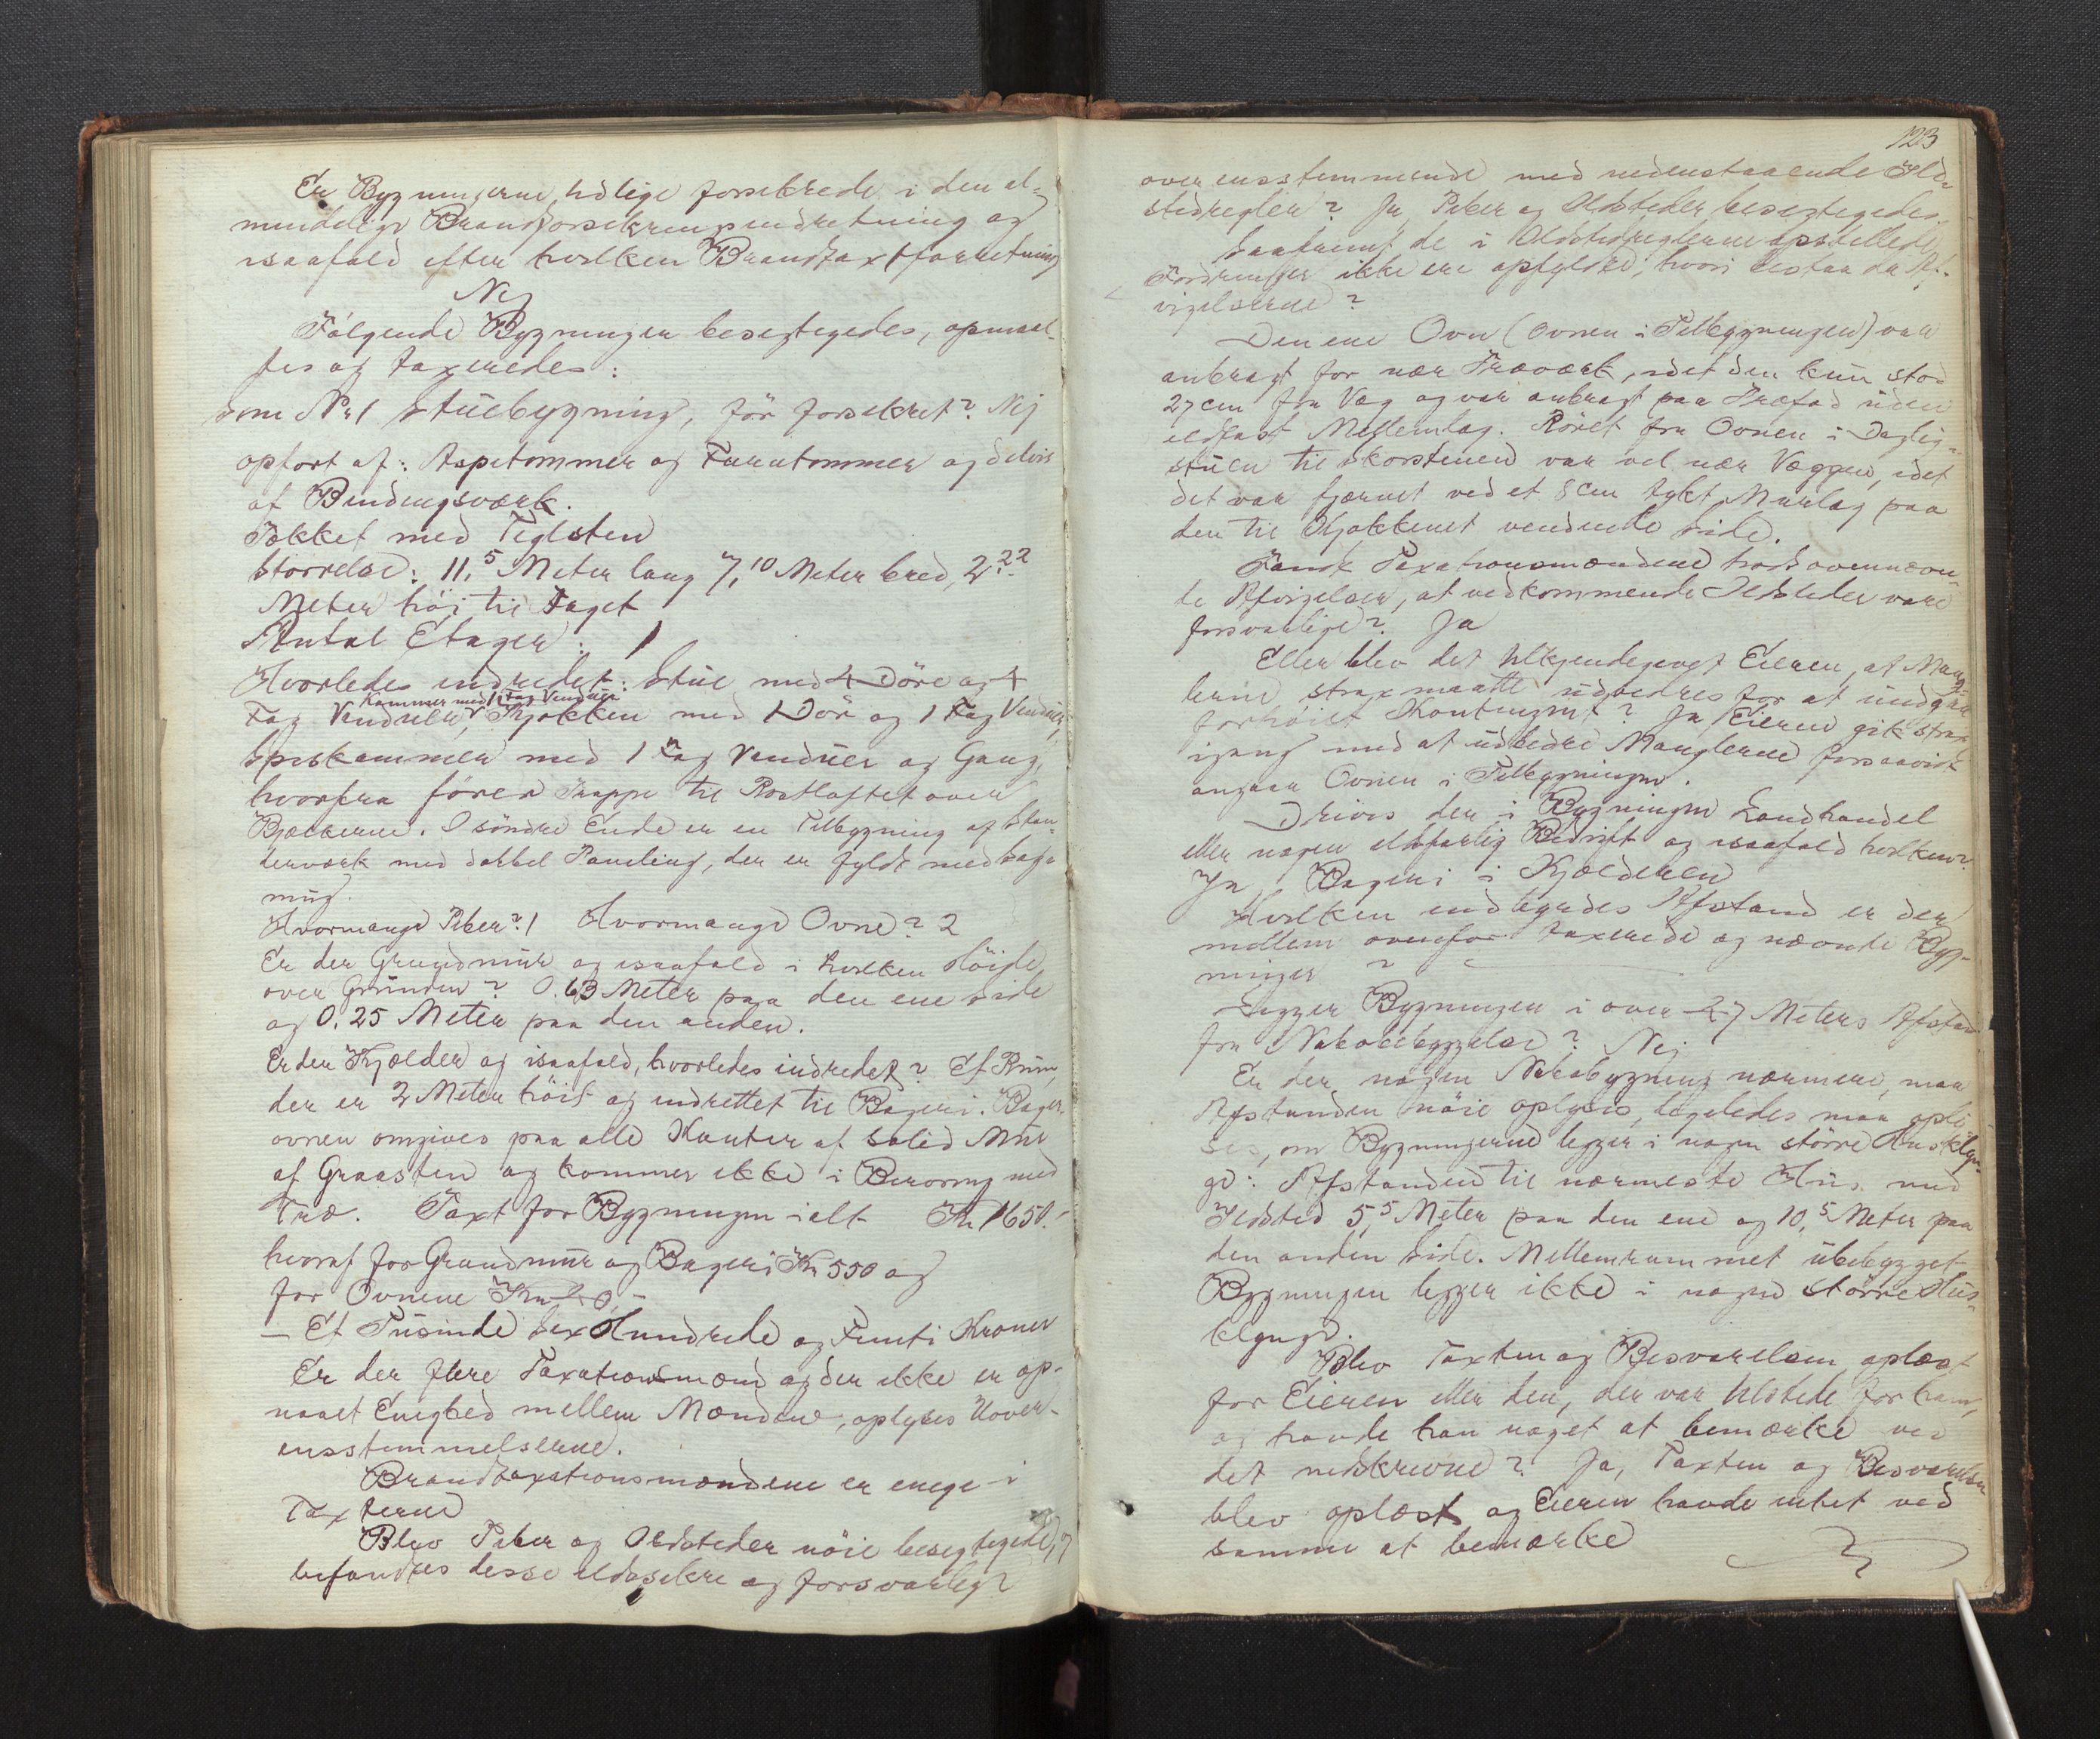 Er Bygningerne tidlige forsikrede i den al-
mindelige Brandforsikringsindretning og
isaafald efter hvilken Brandtaxtforretning
Nej
Følgende Bygninger besigtigedes, opmaal-
tes og taxeredes:
som No 1 Stuebygning, før forsikret? Nej
opført af: Aspetømmer og Furutømmer og delvis
af Bindingsværk.
Tækket med Teglsten
Størrelse: 11,5 Meter lang 7,10 Meter bred, 2,22
Meter høj til Taget
Antal Etager: 1
Hvorledes indredet: Stue med 4 Døre og 4
Kammer med 1 Fag Vinduer
Fag Vinduer, Kjøkken med 1 Dør og 1 Fag Vinduer,
Spiskammer med 1 Fag Vinduer og Gang,
hvorfra fører Trappe til Røstloftet over
Bjælkerne. I søndre Ende er en Tilbygning af Stan-
derværk med dobbel Paneling, der er fyldt med Sag-
mug.
Hvormange Piber? 1 Hvormange Ovne? 2
Er der Grundmur og isaafald i hvilken Høide
over Grunden? 0.63 Meter paa den ene Side
og 0.25 Meter paa den anden.
Er der Kjælder og isaafald, hvorledes indredet? Et Rum,
der er 2 Meter høit og indrettet til Bageri. Bager-
ovnen omgives paa alle Kanter af solid Mur
af Graasten og kommer ikke i Berøring med
Træ. Taxt for Bygningen ialt Kr 1650.-
hvoraf for Grundmur og Bageri Kr 550 og
for Ovnene
- Et Tusinde Sex Hundrede og Femti Kroner
Er der flere Taxationsmænd og der ikke er op-
naaet Enighed mellem Mændene, oplyses Uover-
ensstemmelserne.
Brandtaxationsmændene er enige i
Taxterne
Blev Piber og Ildsteder nøie besigtigede, og
befandtes disse ildsikre og forsvarlige
123
overensstemmende med nedenstaaende Ild-
stedregler? Ja Piber og Ildsteder besigtigedes.
Saafremt de i Ildstedreglerne opstillede
Fordringer ikke ere opfyldte, hvori bestaa da Af-
vigelserne?
Den ene Ovn (Ovnen i Tilbygningen) var
anbragt for nær Træværk, idet den kun stod
27 cm fra Væg og var anbragt paa Træfod uden
ildfast Mellemlag. Røret fra Ovnen i Daglig-
stuen til Skorstenen var vel nær Væggen, idet
det var fjærnet ved et 8 cm tykt Murlag paa
den til Kjøkkenet vendende Side.
Fandt Taxationsmændene trods ovennævn-
te Afvigelser, at vedkommende Ildsteder vare
forsvarlige? Ja
Eller blev det tilkjendegivet Eieren, at Mang-
lerne strax maatte udbedres for at undgaa
forhøiet Kontingent? Ja Eieren gik strax
igang med at udbedre Manglerne forsaavidt
angaar Ovnen i Tilbygningen.
Drives der i Bygningen Landhandel
eller nogen ildsfarlig Bedrift og isaafald hvilken?
Ja, Bageri i Kjælderen
Hvilken indbyrdes Afstand er der
mellem ovenfor taxerede og nævnte Byg-
ninger?
Ligger Bygningen i over 27 Meters Afstand
fra Nabobebyggelse? Nej
Er der nogen Nabobygning nærmere, maa
Afstanden nøie oplyses, ligeledes maa oply-
ses, om Bygningerne ligger i nogen større Husklyn-
ge: Afstanden til nærmeste Hus med
Ildsted 5,5 Meter paa den ene og 10,5 Meter paa
den anden Side. Mellemrummet ubebygget
Bygningen ligger ikke i nogen større Hus-
klynge.
Blev Taxten og Besvarelsen oplæst
for Eieren eller den, der var tilstede for ham,
og havde han noget at bemærke ved
det nedskrevne? Ja, Taxten og Besvarelsen
blev oplæst og Eieren havde intet ved
samme at bemærke